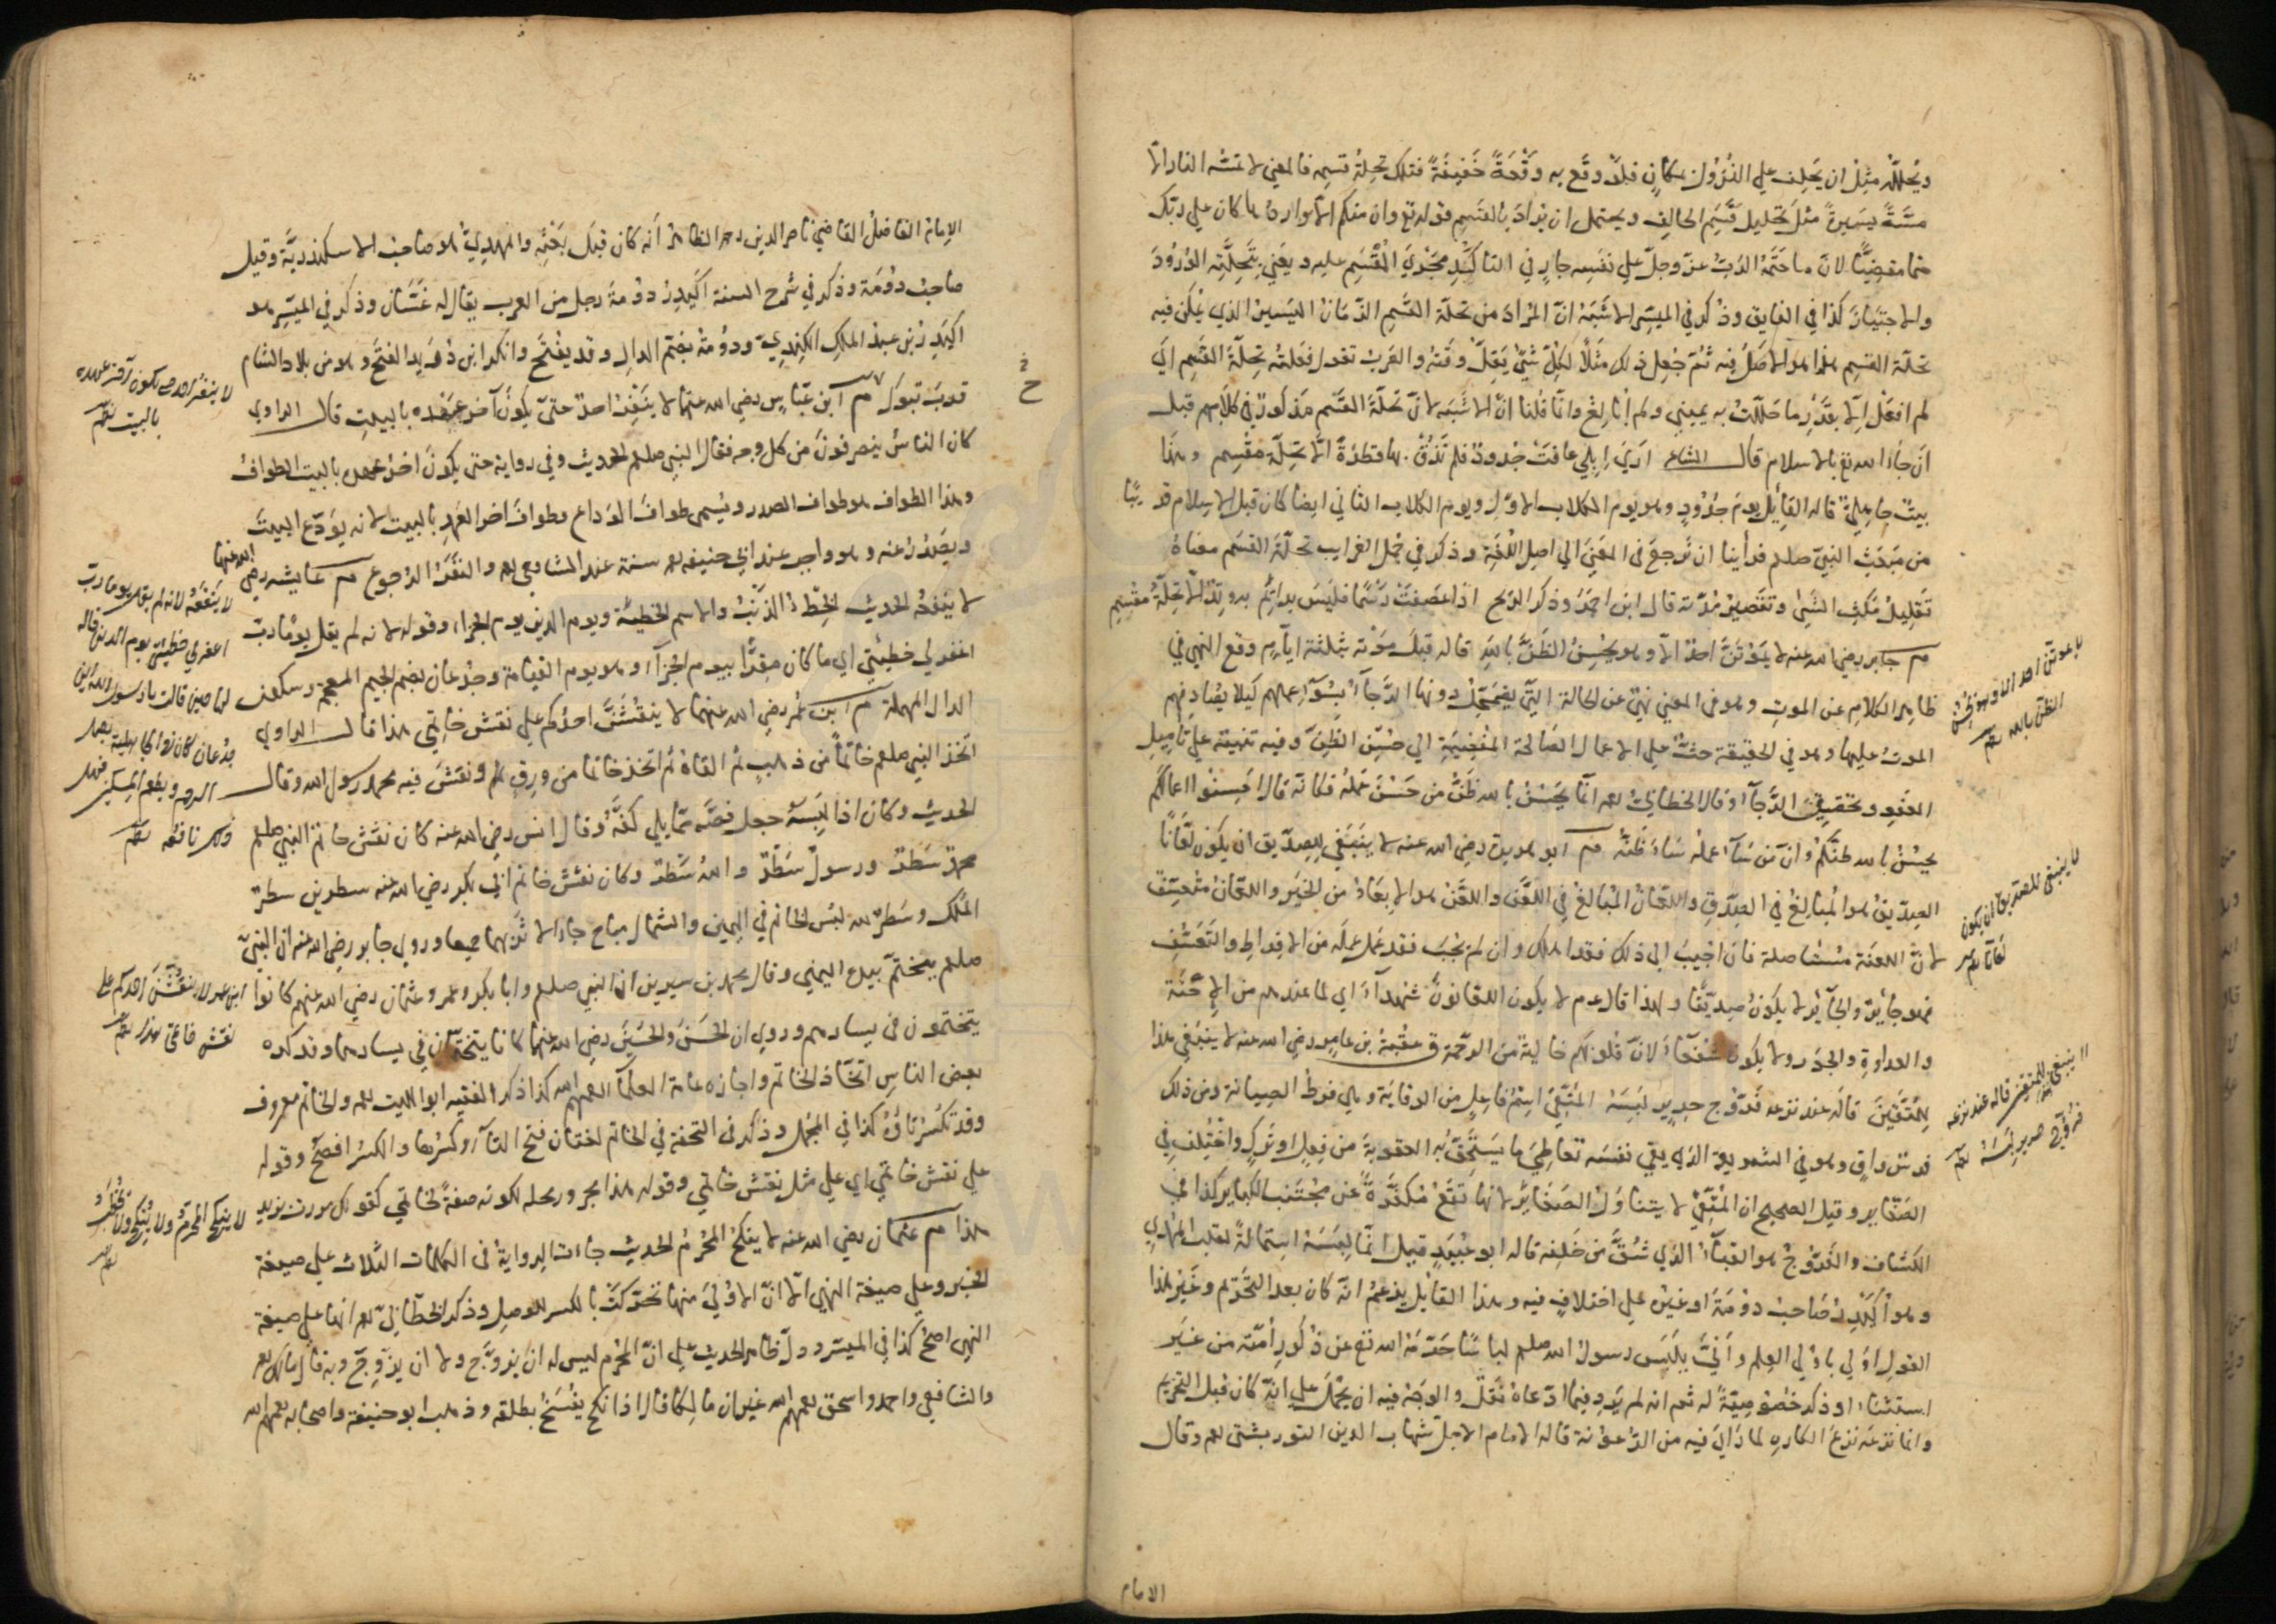 ويُحلِّلُه مثل ان يحلف على النزول بمكانٍ فلو وقع به وقعةً خفيفةً فتلك تحلة قسمه فالمعنى لا تمسّه النار الا
مسّةً يسيرةً مثل تحليل قسم الحالف ويحتمل ان يراد بالقسم قوله تع وان منكم الا واردها كان على ربك
حتما مقضيًّا لانّ ما حتمه الربّ عزّ وجلّ على نفسه جارٍ في التاكيد مجرى المُقسَم عليه ويعني بتحلّته الورود
والاجتياز كذا في الفايق وذكر في الميسّر الاشبه انّ المراد من تحلّة القسم الزمان اليسير الذي يمكن فيه
تحلّة القسم هذا هو الاصل فيه ثُمّ جُعل ذلك مثلًا لكلّ شيءٍ يقلّ وقته والعرب تقول فعلته تحلّة القسم اي
لم افعل الّا بقدرِ ما حلّلتُ به يميني ولم أبالغ وانّا قلنا انّ الاشبه لانّ تحلّة القسم مذكورٌ في كلامهم قبل
ان جاء الله تع بالاسلام قال الشاعر ارى إبلي عافت جدودَ فلم تذق بها قطرةً الّا تحلّة مقسم وهذا
بيتٌ جاهليٌّ قاله القائل يوم جدودٍ وهو يوم الكلاب الاول ويوم الكلاب الثاني ايضا كان قبل الاسلام قريبًا
من مبعث النبيّ صلعم فرأينا ان نرجع في المعنى الى اصل اللغة وذكر في جمل الغرايب تحلّة القسم معناه
تقليل مكث الشيء وتقصير مدّته قال ابن احمر وذكر الريح اذا عصفت رسمًا فليس بدائمٍ به وتدٌ الّا تحلّة مقسم
م جابر رضي الله عنه لا يموتنّ احدٌ الا وهو يحسن الظنّ بالله قاله قبل موته بثلثة ايّامٍ وقع النهي في
ظاهر الكلام عن الموت وهو في المعنى نهيٌ عن الحالة التي يضمحلّ دونها الرّجاءُ بسوءِ عملهم كيلا يصادفهم
الموت عليها وهو في الحقيقة حثٌّ على الاعمال الصالحة المفضية الى حسن الظنّ وفيه تنبيه على تأميل
العفو وتحقيق الرّجاء وقال الخطابي رحمه انّما يحسن بالله ظنّ من حسن عمله فكانّه قال احسنوا اعمالكم
يحسن بالله ظنّكم وانّ من ساء عمله ساء ظنّه م ابو هريرة رضي الله عنه لا ينبغي لصدّيق ان يكون لعّانًا
الصدّيق هو المبالغ في الصدق واللعّان المبالغ في اللعن واللعن هو الابعاد من الخير واللعّان متعسّفٌ
لانّ اللعنة مستاصلة فان اجيب الى ذلك فقد اهلك وان لم يجب فقد عمل عمله من الافراط والتعسّف
فهو جائرٌ والجائر لا يكون صدّيقًا ولهذا قال عم لا يكون اللعانون شهداءَ اي لما عندهم من الاحنة
والعداوة والجور ولا يكون شفعاء لانّ قلوبهم خالية من الرحمة ق عقبة بن عامر رضي الله عنه لا ينبغي هذا
للمتقين قاله عند نزعه فرّوج حرير لبسه المتّقي اسم فاعل من الوقاية وهي فرط الصيانة ومن ذلك
فرس واقٍ وهو في الشريعة الذي يقي نفسه تعاطي ما يستحقّ به العقوبة من فعلٍ او تركٍ واختلف في
الصغاير وقيل الصحيح ان المتّقي لا يتناول الصغائر لانها تقع مكفّرةً عن مجتنب الكباير كذا في
الكشاف والفرّوج هو القباءُ الذي شُقّ من خلفه قاله ابو عبيد قيل انّما لبسه استمالةً لقلب المُهدي
وهو أكيدر صاحب دومة او غيره على اختلافٍ فيه وهذا القائل يزعم انّه كان بعد التحريم وغير هذا
القول اولى باولي العلم وانّى يلبس رسول الله صلعم لباسًا حرّمه الله تع عن ذكور أمّته من غير
استثناء او ذكر خصوصيّةً له ثم انه لم يرد فيما ادّعاه نقلٌ والوجه فيه ان يحمل على انّه كان قبل التحريم
وانما نزعه نزع الكاره لما راى فيه من الرعونة قاله الامام الاجل شهاب الدين التوربشتي رحمه وقال
الامام
لا يموتن احد الا وهو يحسن
الظن بالله
لا ينبغي للصديق ان يكون
لعانا
لا ينبغي هذا للمتقين قاله عند نزعه
فروج حرير لبسه
الامام الفاضل القاضي ناصر الدين رحمه الظاهر انّه كان قبل بعثه والمهدي هو صاحب الاسكندريّة وقيل
صاحب دومة وذكر في شرح السنة اكيدر دومة رجل من العرب يقال له غسّان وذكر في الميسّر هو
اكيدر بن عبد الملك الكنديّ ودومة بضم الدال وقد يفتح وانكر ابن دريد الفتح وهو من بلاد الشام
قرب تبوك م ابن عبّاس رضي الله عنهما لا ينفر احدٌ حتى يكون آخر عهده بالبيت قال الراوي
كان الناس ينصرفون من كل وجه فقال النبي صلعم الحديث وفي رواية حتى يكون اخر عهده بالبيت الطواف
وهذا الطواف هو طواف الصدر ويسمى طواف الوداع وطواف اخر العهد بالبيت لانه يودّع البيت
ويصدر عنه وهو واجب عند ابي حنيفة رحمه سنة عند الشافعي رحمه والنفر الرجوع م عايشه رضي الله عنها
لا ينفعه الحديث الخِطء الذنب والاسم الخطيئة ويوم الدين يوم الجزاء وقوله لانه لم يقل يومًا رب
اغفر لي خطيئتي اي ما كان مقرًّا بيوم الجزاء وهو يوم القيامة وجدعان بضم الجيم المعجمة وسكون
الدال المهملة م ابن عمر رضي الله عنهما لا ينقشنّ احدكم على نقش خاتمي هذا قال الراوي
اتخذ النبي صلعم خاتمًا من ذهبٍ ثم القاه ثم اتخذ خاتما من ورقٍ ونقش فيه محمد رسول الله وقال
الحديث وكان اذا لبسه جعل فصّه ممّا يلي كفّه وقال انس رضي الله عنه كان نقش خاتم النبي صلعم
محمدٌ سطرٌ ورسولٌ سطرٌ والله سطرٌ وكان نقش خاتم ابي بكر رضي الله عنه سطرين سطر
الملك وسطر لله لبس الخاتم في اليمين والشمال مباح جاء الاثر بهما جميعا وروى جابر رضي الله عنه ان النبيّ
صلعم يتختّم بيده اليمنى وقال محمد بن سيرين ان النبي صلعم وابا بكر وعمر وعثمان رضي الله عنهم كانوا
يتختمون في يسارهم وروي ان الحسن والحسين رضي الله عنهما كانا يتختّمان في يسارهما وقد كره
بعض الناس اتخّاذ الخاتم واجازه عامة العلماء رحمهم الله كذا ذكر الفقيه ابو الليث رحمه والخاتم معروف
وقد تكسر تاؤه كذا في المجمل وذكر في التحفة في الخاتم لغتان فتح التاء وكسرها والكسر افصح وقوله
على نقش خاتمي اي على مثل نقش خاتمي وقوله هذا مجرور محله لكونه صفةً لخاتمي كقولك مررت بزيد
هذا م عثمان رضي الله عنه لا ينكح المحرم الحديث جاءت الرواية في الكلمات الثلاث على صيغة
الخبر وعلى صيغة النهي الّا انّ الاولى منها تحركت بالكسر للوصل وذكر الخطابي رحمه انها على صيغة
النهي اصحّ كذا في الميسر ودلّ ظاهر الحديث على انّ المحرم ليس له ان يزوّج ولا ان يزوّج وبه قال مالك رحمه
والشافعي واحمد واسحق رحمهم الله غير ان مالكا قال اذا نكح يفسخ بطلقه وذهب ابو حنيفة واصحابه رحمهم الله
لا ينفر احد حتى يكون آخر عهده
بالبيت
لا ينفعه لانه لم يقل يوما رب
اغفر لي خطيئتي يوم الدين قاله
لها حين قالت يا رسول الله ابن
جدعان كان في الجاهلية يصل
الرحم ويطعم المسكين فهل
ذلك نافعه
ابن عمر لا ينقشن احدكم على
نقش خاتمي هذا
لا ينكح المحرم ولا يُنكح ولا يخطب